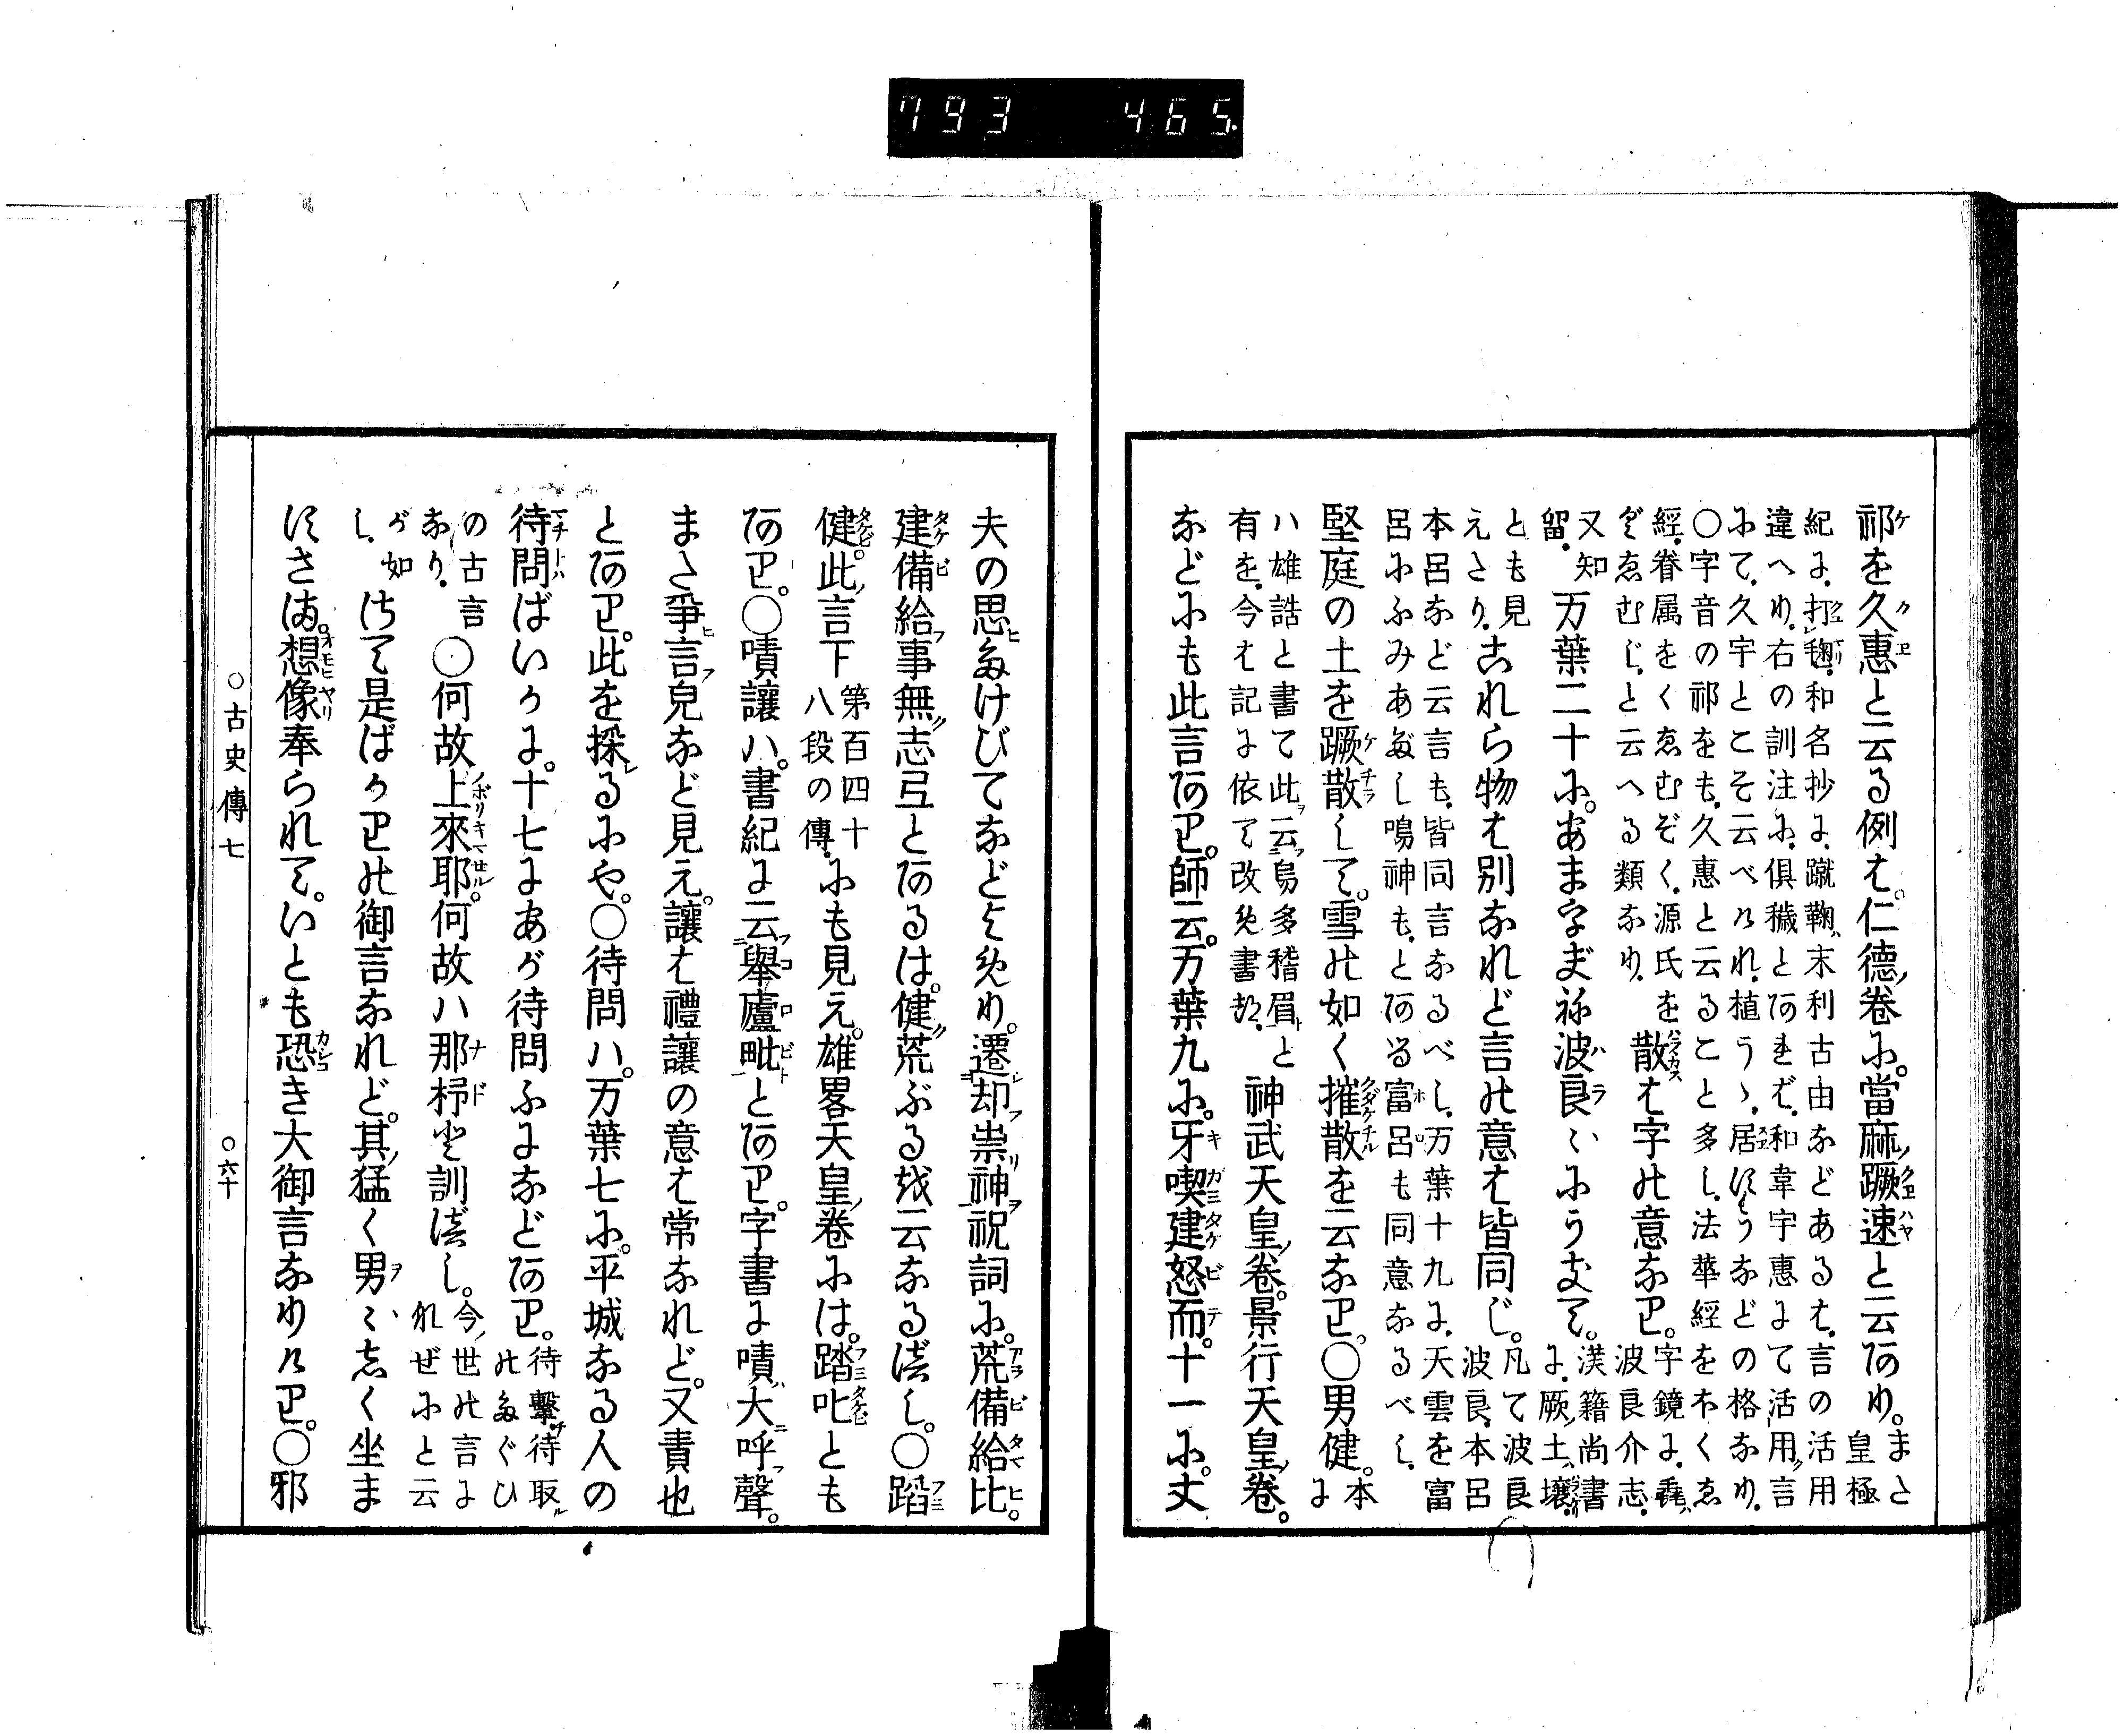 793 465.
祁を久惠と云る例は。仁德ノ卷に。當麻ノ蹶速と云あり。また皇極
紀に、打毱、和名抄に、蹴鞠ハ末利古由などあるは、言の活用
違へり、右の訓注に、倶穢とあれば、和韋宇惠にて活用ク言
にて、久宇とこそ云べけれ、植うゝ、居すうなどの格なり、
〇字音の祁をも、久惠と云ること多し、法華經をホくゑ
經、眷属をくゑむぞく、源氏を
ぐゑむじ、と云へる類なり、
散は字の意なり。字鏡に、毳ハ
波良介志、
又知
留、
万葉二十に。あま字ま祢波良ゝにうきて。漢籍尚書
に、厥ノ土ハ壤、
とも見
えたり、
これら物は別なれど言の意は皆同じ。凡て波良
波良、本呂
本呂など云言も、皆同言なるべし、万葉十九に、天雲を富
呂にふみあだし鳴神も、とある富呂も同意なるべし、
堅庭の土を蹶散して。雪の如く摧散を云なり。〇男健。本
に
ハ雄誥と書て此ヲ云フ烏多稽眉ト、と
有を、今は記に依て改め書り、
神武天皇ノ卷。景行天皇ノ卷。
なども此言あり。師云。万葉九に。牙喫建怒而。十一に。丈
夫の思たけびてなどよめり。遷却祟神祝詞に。荒備給比。
建備給事無ク志弖とあるは。健ク荒ぶる状云なるべし。〇蹈
健。此ノ言下第百四十
八段の傳、にも見え。雄畧天皇ノ卷には。踏叱とも
あり。〇嘖讓ハ。書紀に云擧廬毗とあり。字書に嘖ハ大ニ呼フ聲。
また爭言皃など見え。讓は禮讓の意は常なれど。又責也
とあり。此を採るにや。〇待問ハ。万葉七に。平城なる人の
待問ばいかに。十七にあが待問ふになどあり。待撃、待取
のたぐひ
の古言
なり、
〇何故上來耶。何故ハ那杼と訓べし。今ノ世の言に
なぜにと云
が如
し、
さて是ばかりの御言なれど。其ノ猛く男ゝしく坐ま
すさま。想像奉られて。いとも恐き大御言なりけり。〇邪
〇古史傳七
〇六十